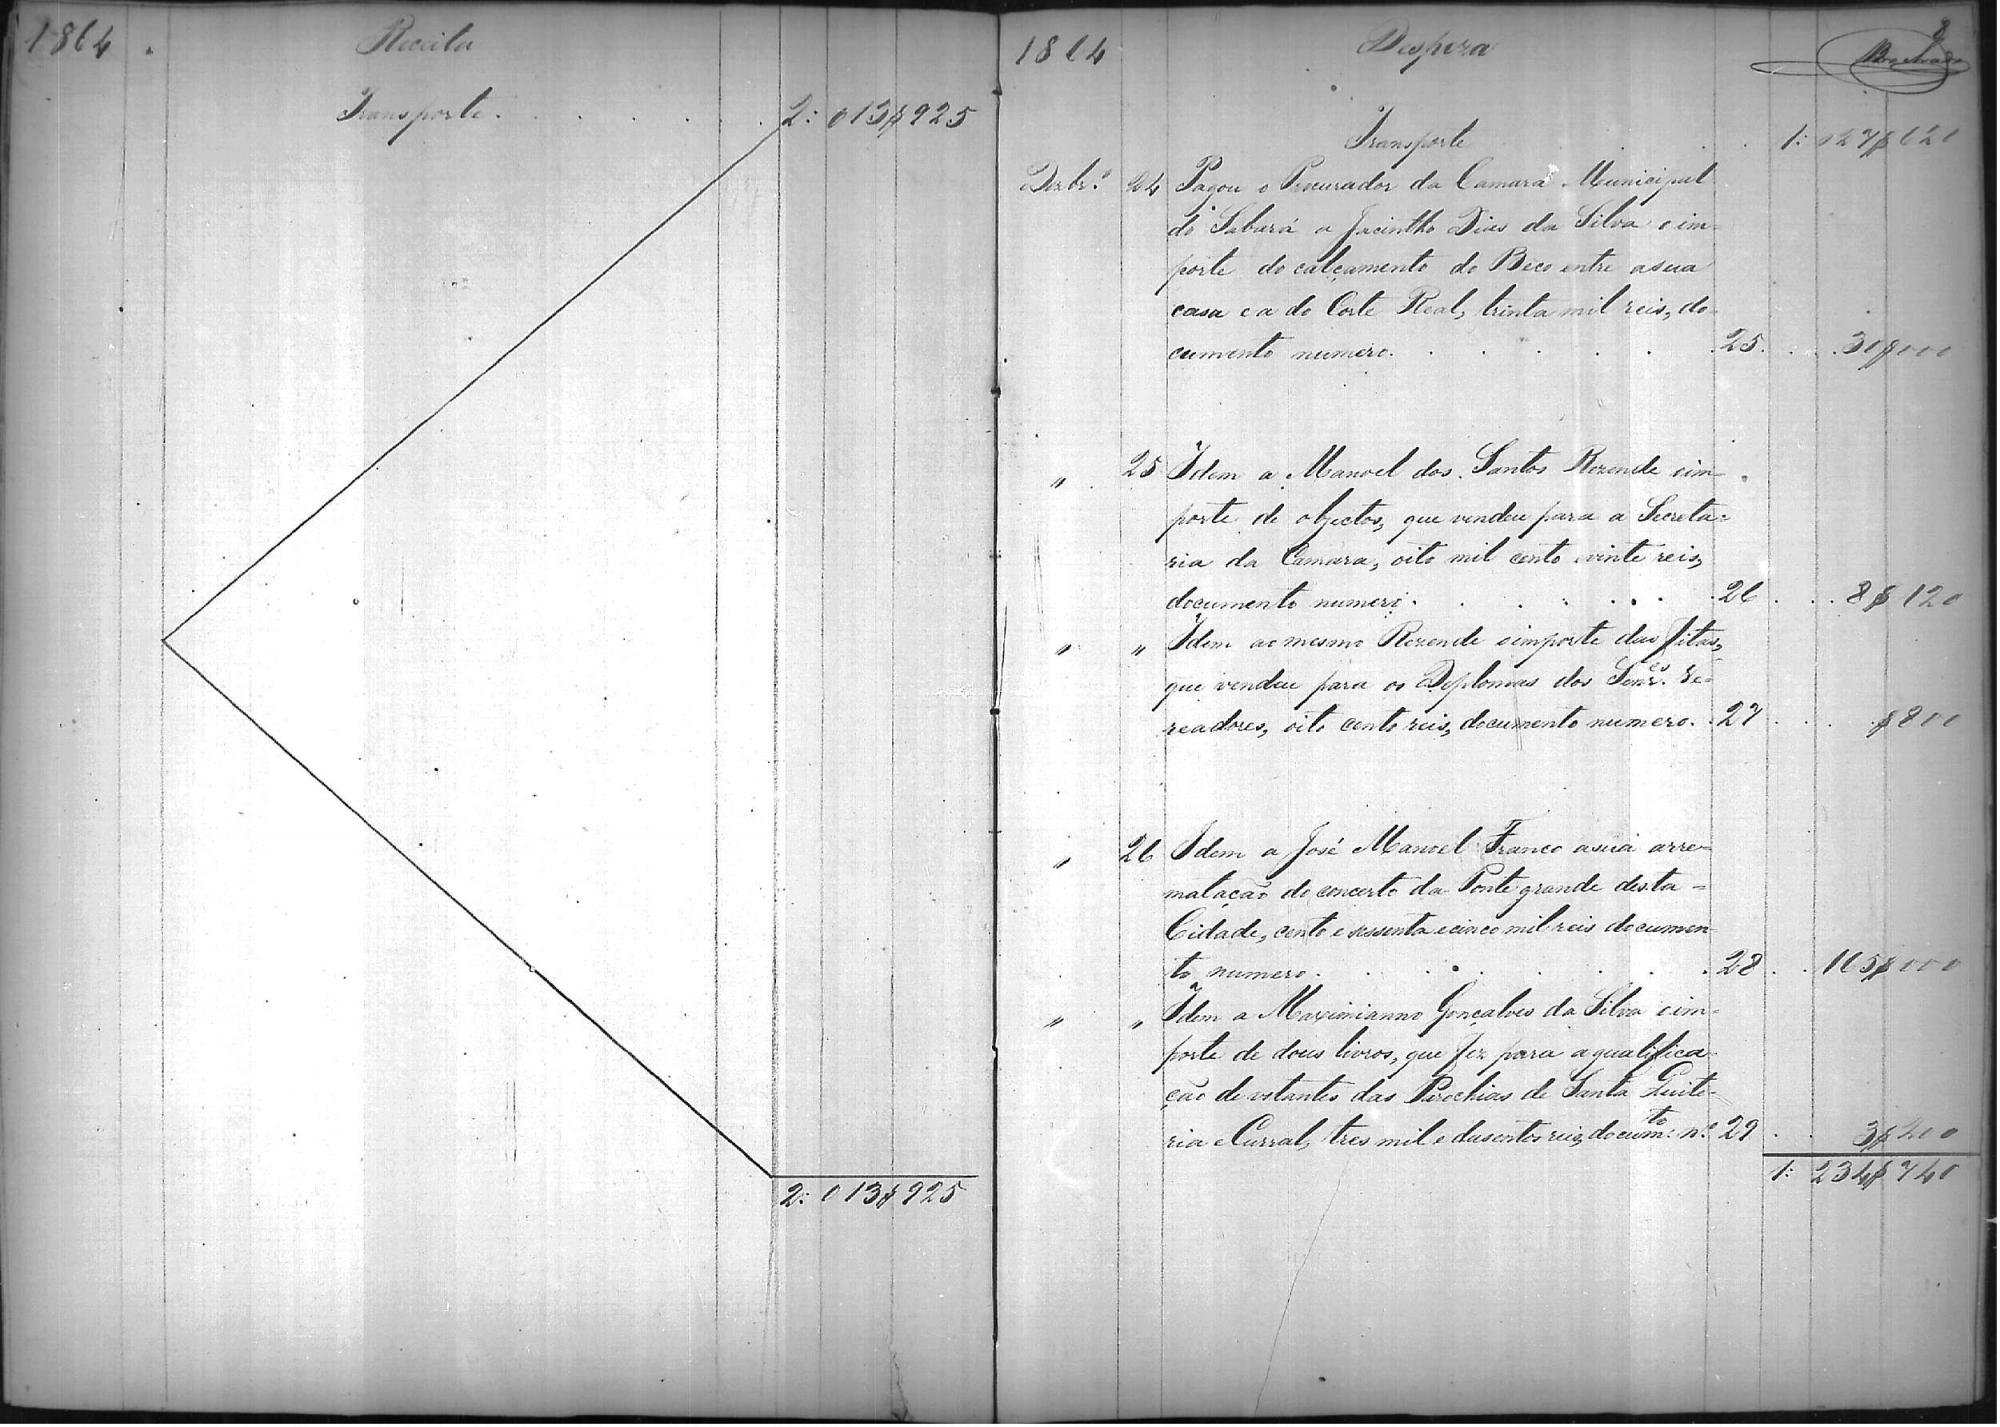 1864.
Receita
Transporte. . . . . . 2: 013$925
2: 013$925
1864
Despeza
9
Transporte . . . 1: 027$620
Dezbr.º 24 Pagou o Procurador da Camara Municipal
do Sabará a Jacintho Dias da Silva o im-
porte do calçamento do Beco entre a sua
casa e a do Corte Real, trinta mil reis, do-
cumento numero. . . . . . 25. . . 30$000
" 25 Idem a Manoel dos Santos Rezende o im-
porte de objectos, que vendeu para a Secreta=
ria da Camara, oito mil cento e vinte reis,
documento numero. . . . . . 26 . . . 8$120
" " Idem ao mesmo Rezende o importe das fitas,
que vendeu para os Deplomas dos Senr.es Ve-
readores, oito cento reis, documento numero. . 27 . . . $800
" 26 Idem a José Manoel Franco a sua arre-
matação do concerto da Ponte grande desta =
Cidade, cento e sessenta e cinco mil reis documen-
to numero. . . . . . . 28 . . 165$000
" " Idem a Maximianno Gonçalves da Silva o im-
porte de dous livros, que fez para a qualifica-
ção de votantes das Parochias de Santa Quite-
ria e Curral, tres mil e dusentos reis, docum.to n.º 29 . . 3$200
1: 234$740